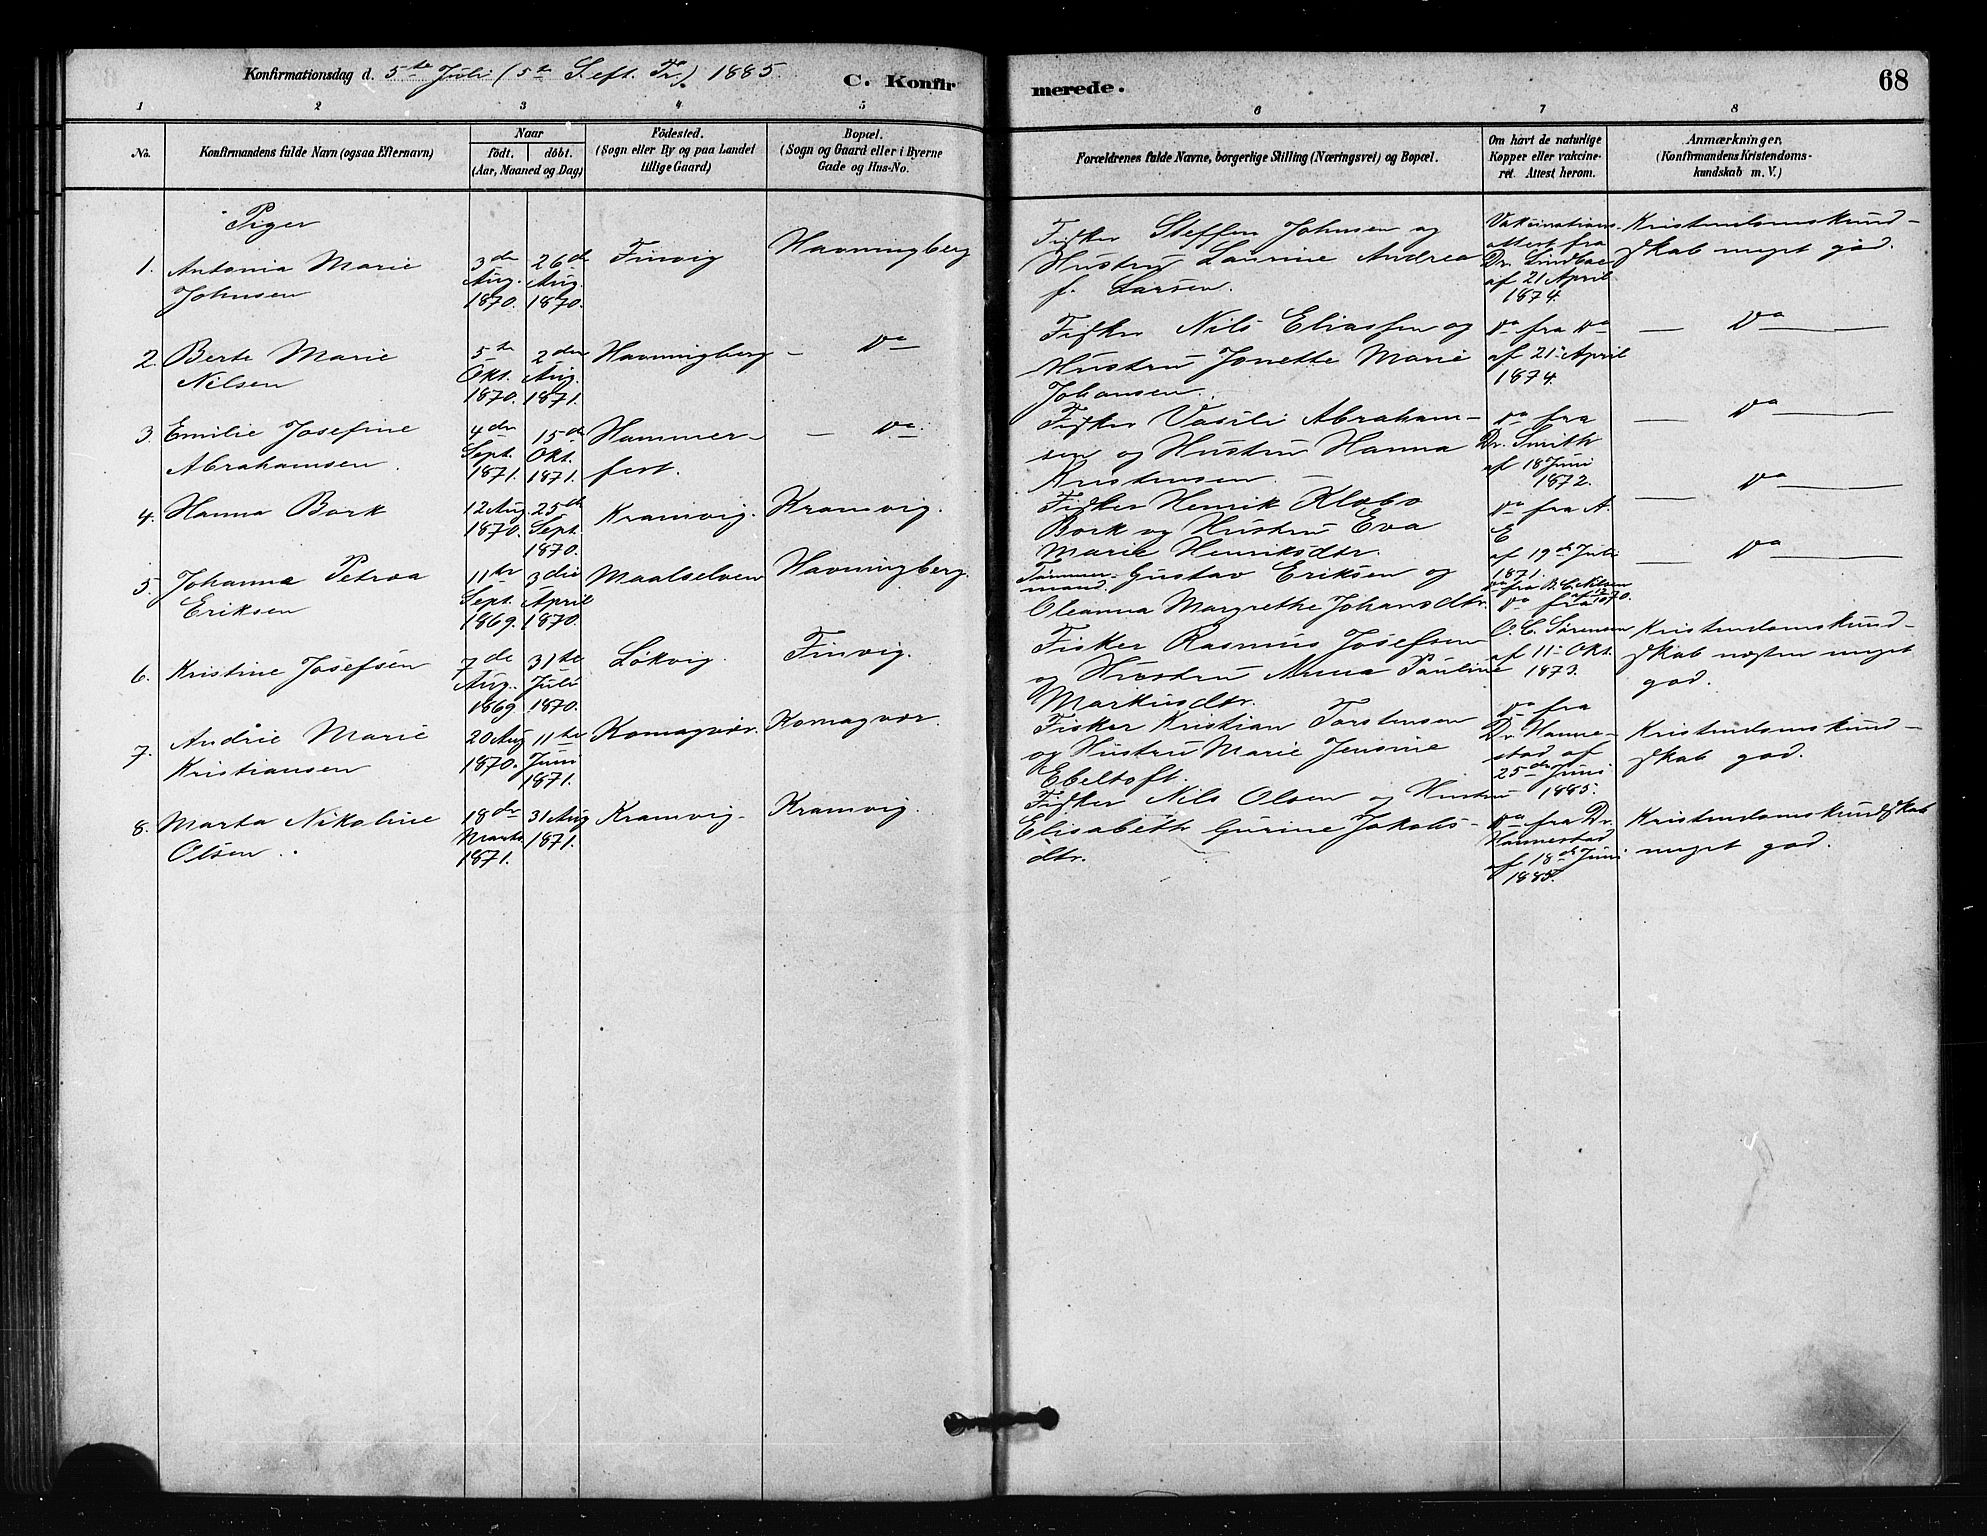 Konfirmationsdag d. 5te Juli (5te S. eft. Tr.) 1885.
C. Konfirmerede.
68
1 2 3 4 5 6 7 8
No.
Konfirmandens fulde Navn (ogsaa Efternavn)
Naar
født. døbt.
(Aar, Maaned og Dag)
Fødested.
(Sogn eller By og paa Landet
tillige Gaard)
Bopæl.
(Sogn og Gaard eller i Byerne
Gade og Hus-No.
Forældrenes fulde Navne, borgerlige Stilling (Næringsvei) og Bopæl.
Om havt de naturlige
Kopper eller vakcine-
ret. Attest herom.
Anmærkninger.
(Konfirmandens Kristendoms-
kundskab m. V.)
Piger
1. Antonia Marie
Johnsen
3die
Aug.
1870.
26de
Aug.
1870.
Finvig
Havningberg
Fisker Steffen Johnsen og
Hustru Laurine Andrea
f. Larsen.
Vakcinations
attest fra
Dr. Lindboe
af 21 April
1874.
Kristendomskund-
skab meget god.
2. Berte Marie
Nilsen
5te
Okt.
1870.
2den
Aug.
1871.
Havningberg
— Do
Fisker Nils Eliassen og
Hustru Jonette Marie
Johansen.
Do fra Do
af 21 April
1874.
— Do —
3. Emilie Josefine
Abrahamsen.
4de
Sept.
1871.
15de
Okt.
1871.
Hammer-
fest.
— Do.
Fisker Vasili Abraham-
sen og Hustru Hanna
Kristensen.
Do fra
Dr. Smith
af 18 Juni
1872.
— Do —
4. Hanna Bork
12 Aug.
1870.
25de
Sept.
1870.
Kramvig.
Kramvig.
Fisker Henrik Klæbo
Bork og Hustru Eva
Marie Henriksdtr.
Do fra A.
E
af 19de Juli
1871.
— Do —
5. Johanna Petrea
Eriksen
11te
Sept.
1869.
3die
April
1870.
Maalselven
Havningberg.
Tømmer-
mand Gustav Eriksen og
Oleanna Margrethe Johansdtr.
Do fra
— Do —
6. Kristine Josefsen
7de
Aug.
1869
31te
Juli
1870.
Løkvig.
Finvig.
Fisker Rasmus Josefsen
og Hustru Anna Pauline
Markusdtr.
Do fra
O. C. Sørensen
af 11 Okt.
1873.
Kristendomskund-
skab næsten meget
god.
7. Andrie Marie
Kristiansen
20 Aug
1870.
11te
Juni
1871.
Komagvær.
Komagvær.
Fisker Kristian Torstensen
og Hustru Marie Jensine
Ebeltoft.
Do fra
Dr. Hanne-
stad af
25de Juni
1885.
Kristendomskund-
skab god.
8. Marta Nikoline
Olsen.
18de
Marts
1871.
31 Aug
1871.
Kramvig.
Kramvig.
Fisker Nils Olsen og Hustru
Elisabeth Gurine Jakobs-
dtr.
Do fra Dr.
Hannestad
af 18de Juni
1885.
Kristendomskundskab
meget god.